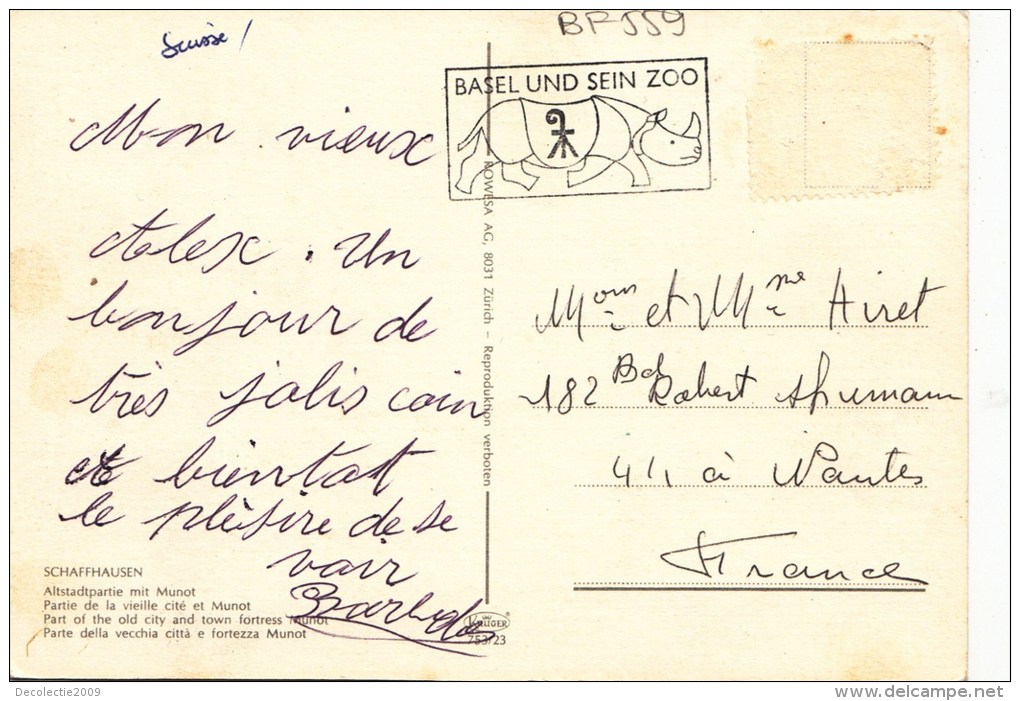 Suisse /
BF 559
BASEL UND SEIN ZOO
Mon vieux
Alex. Un
bonjour de
très jolis coin
et bientat
le plèsire de se
vair
ROWESA AG, 8031 Zürich – Reproduktion verboten
Moun et Mme Hiret
182 Bd Robert Shumann
à Nantes
France
SCHAFFHAUSEN
Altstadtpartie mit Munot
Partie de la vieille cité et Munot
Part of the old city and town fortress Munot
Parte della vecchia città e fortezza Munot
KRÜGER
753/23
Decolectie2009
http://www.delcampe.net